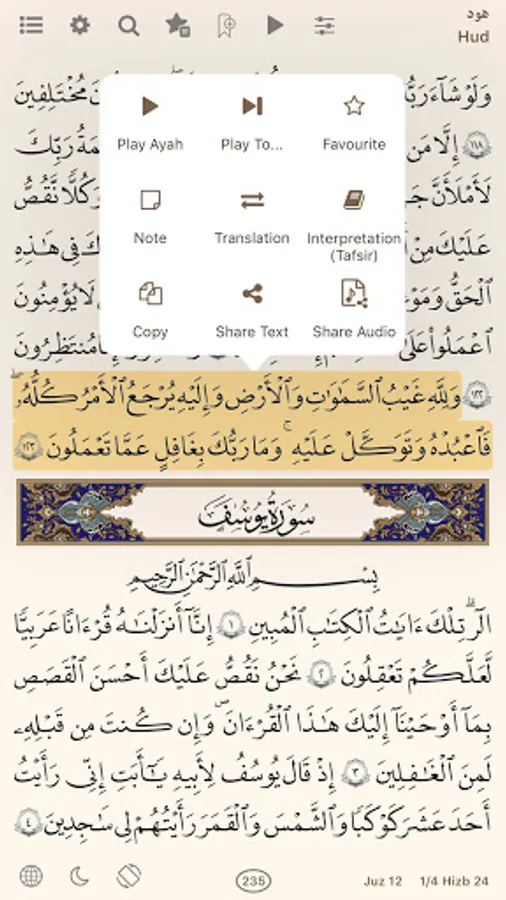 هود
Hud
وَلَوْ شَآءَ رَبُّ مُخْتَلِفِينَ
١١٨ إِلَّا مَن رَبِّكَ
لَأَمْلَأَنَّ وَكُلًّا نَّقُصُّ
عَلَيْكَ مِنْ فِى هَـٰذِهِ
ٱلْحَقُّ لَا يُؤْمِنُونَ
ٱعْمَلُوا۟ عَلَىٰ مُنتَظِرُونَ
Play Ayah
Play To...
Favourite
Note
Translation
Interpretation
(Tafsir)
Copy
Share Text
Share Audio
١٢٢ وَلِلَّهِ غَيْبُ ٱلسَّمَـٰوَٰتِ وَٱلْأَرْضِ وَإِلَيْهِ يُرْجَعُ ٱلْأَمْرُ كُلُّهُۥ
فَٱعْبُدْهُ وَتَوَكَّلْ عَلَيْهِ ۚ وَمَا رَبُّكَ بِغَـٰفِلٍ عَمَّا تَعْمَلُونَ ١٢٣
سُورَةُ يُوسُفَ
بِسْمِ ٱللَّهِ ٱلرَّحْمَـٰنِ ٱلرَّحِيمِ
الٓر ۚ تِلْكَ ءَايَـٰتُ ٱلْكِتَـٰبِ ٱلْمُبِينِ ١ إِنَّآ أَنزَلْنَـٰهُ قُرْءَٰنًا عَرَبِيًّا
لَّعَلَّكُمْ تَعْقِلُونَ ٢ نَحْنُ نَقُصُّ عَلَيْكَ أَحْسَنَ ٱلْقَصَصِ
بِمَآ أَوْحَيْنَآ إِلَيْكَ هَـٰذَا ٱلْقُرْءَانَ وَإِن كُنتَ مِن قَبْلِهِۦ
لَمِنَ ٱلْغَـٰفِلِينَ ٣ إِذْ قَالَ يُوسُفُ لِأَبِيهِ يَـٰٓأَبَتِ إِنِّى رَأَيْتُ
أَحَدَ عَشَرَ كَوْكَبًا وَٱلشَّمْسَ وَٱلْقَمَرَ رَأَيْتُهُمْ لِى سَـٰجِدِينَ ٤
235
Juz 12
1/4 Hizb 24